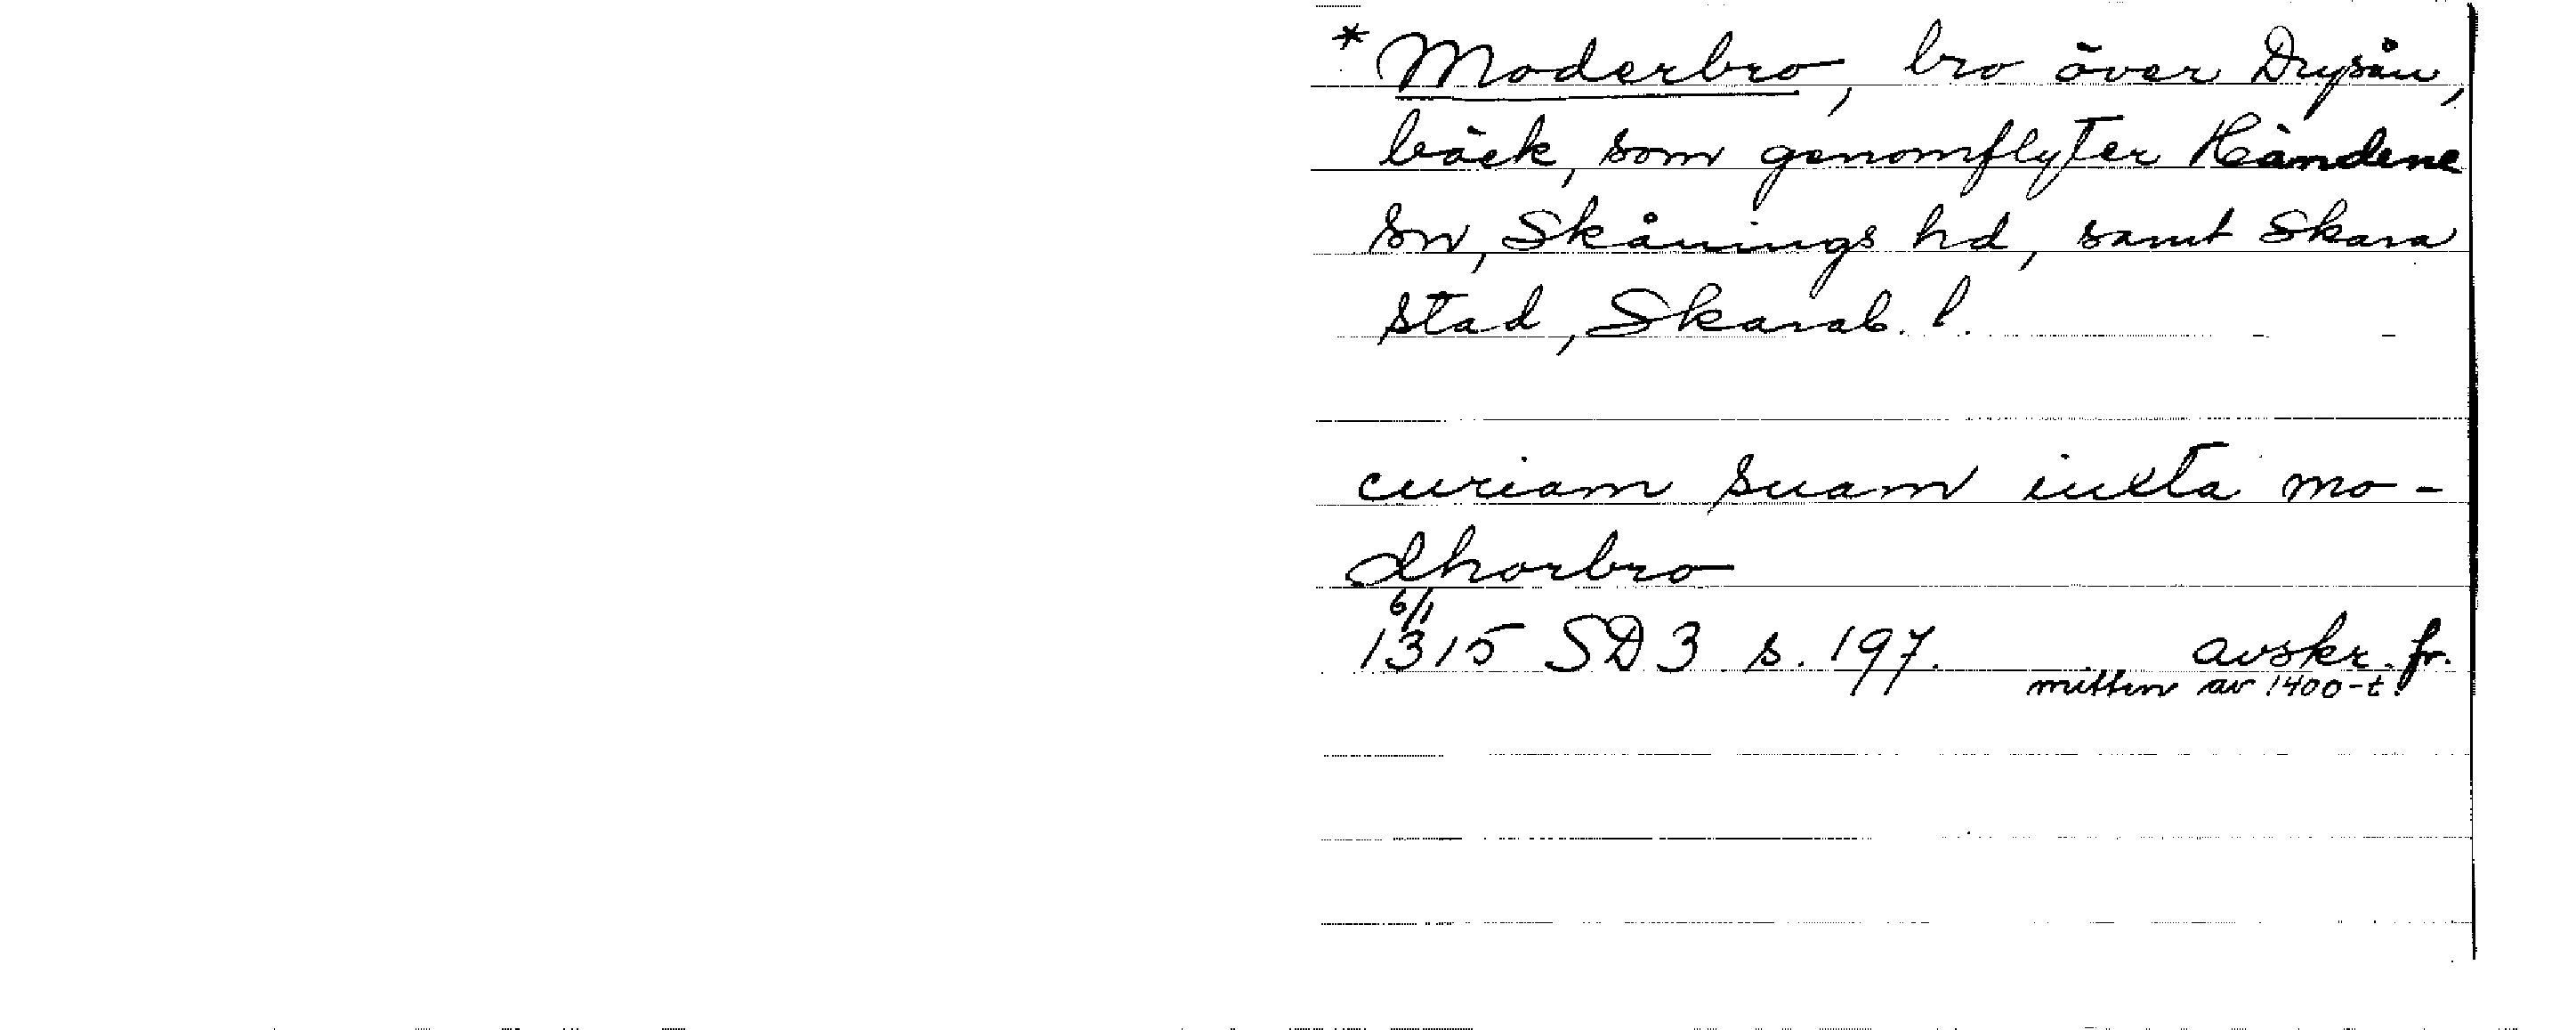 * Moderbro, bro över Drysån,
bäck, som genomflyter Händene
sn, Skånings hd, samt Skara
stad, Skarab. l.
curiam suam iuxta mo-
dhorbro
6/1
1315 SD 3 s. 197. avskr. fr.
mitten av 1400-t.